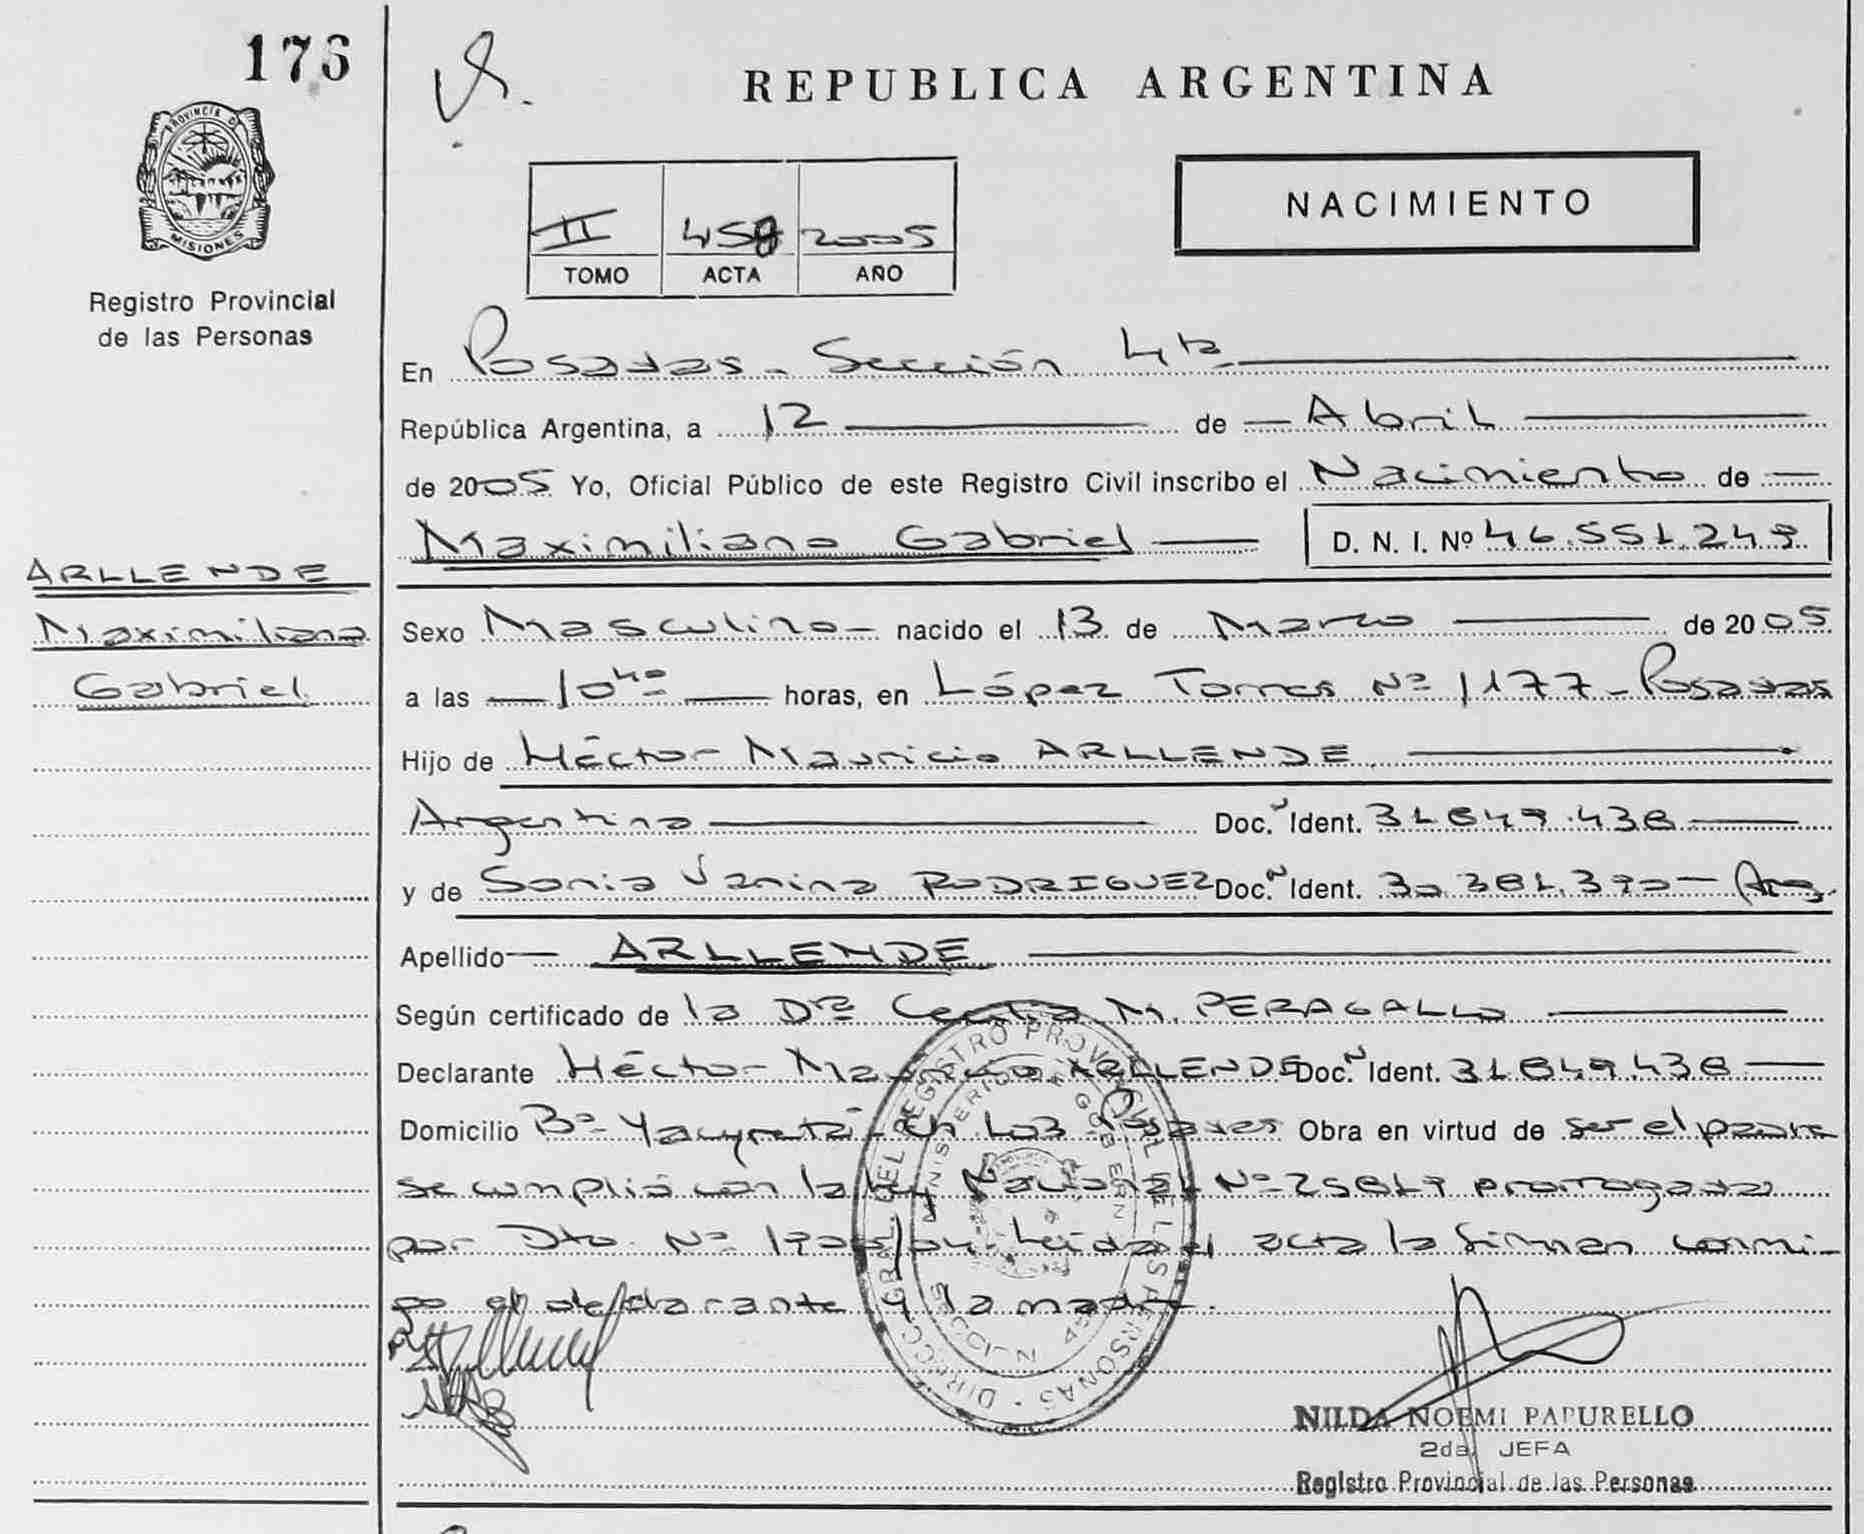 176
REPUBLICA ARGENTINA
PROVINCIA DE
MISIONES
Registro Provincial
de las Personas
NACIMIENTO
II 458 2005
TOMO ACTA AÑO
En Posadas - Sección 4ta
República Argentina, a 12 de Abril
de 2005 Yo, Oficial Público de este Registro Civil inscribo el Nacimiento de
Maximiliano Gabriel D. N. I. Nº 46.551.249
ARLLENDE
Maximiliano
Gabriel
Sexo Masculino nacido el 13 de Marzo de 2005
a las 10 horas, en López Torres Nº 1177 - Posadas
Hijo de Héctor Mauricio ARLLENDE
Argentina Doc.N Ident. 31.849.438
y de Sonia Vanina RODRIGUEZ Doc.N Ident. 30.381.390 - Arg.
Apellido ARLLENDE
Según certificado de la Dra Cecilia M. PERAGALLO
Declarante Héctor Mauricio ARLLENDE Doc.N Ident. 31.849.438
Domicilio Bº Yacyretá - Ch 103 - Posadas Obra en virtud de ser el padre
se cumplió con la ley Nacional Nº 25819 prorrogada
por Dto. Nº /04. Leida el acta la firman conmi-
go el declarante y la madre.
DIRECC. GRAL. DEL REGISTRO PROVINCIAL DE LAS PERSONAS
MINISTERIO DE GOBIERNO
SECCION 4ª
NILDA NOEMI PAPURELLO
2da. JEFA
Registro Provincial de las Personas